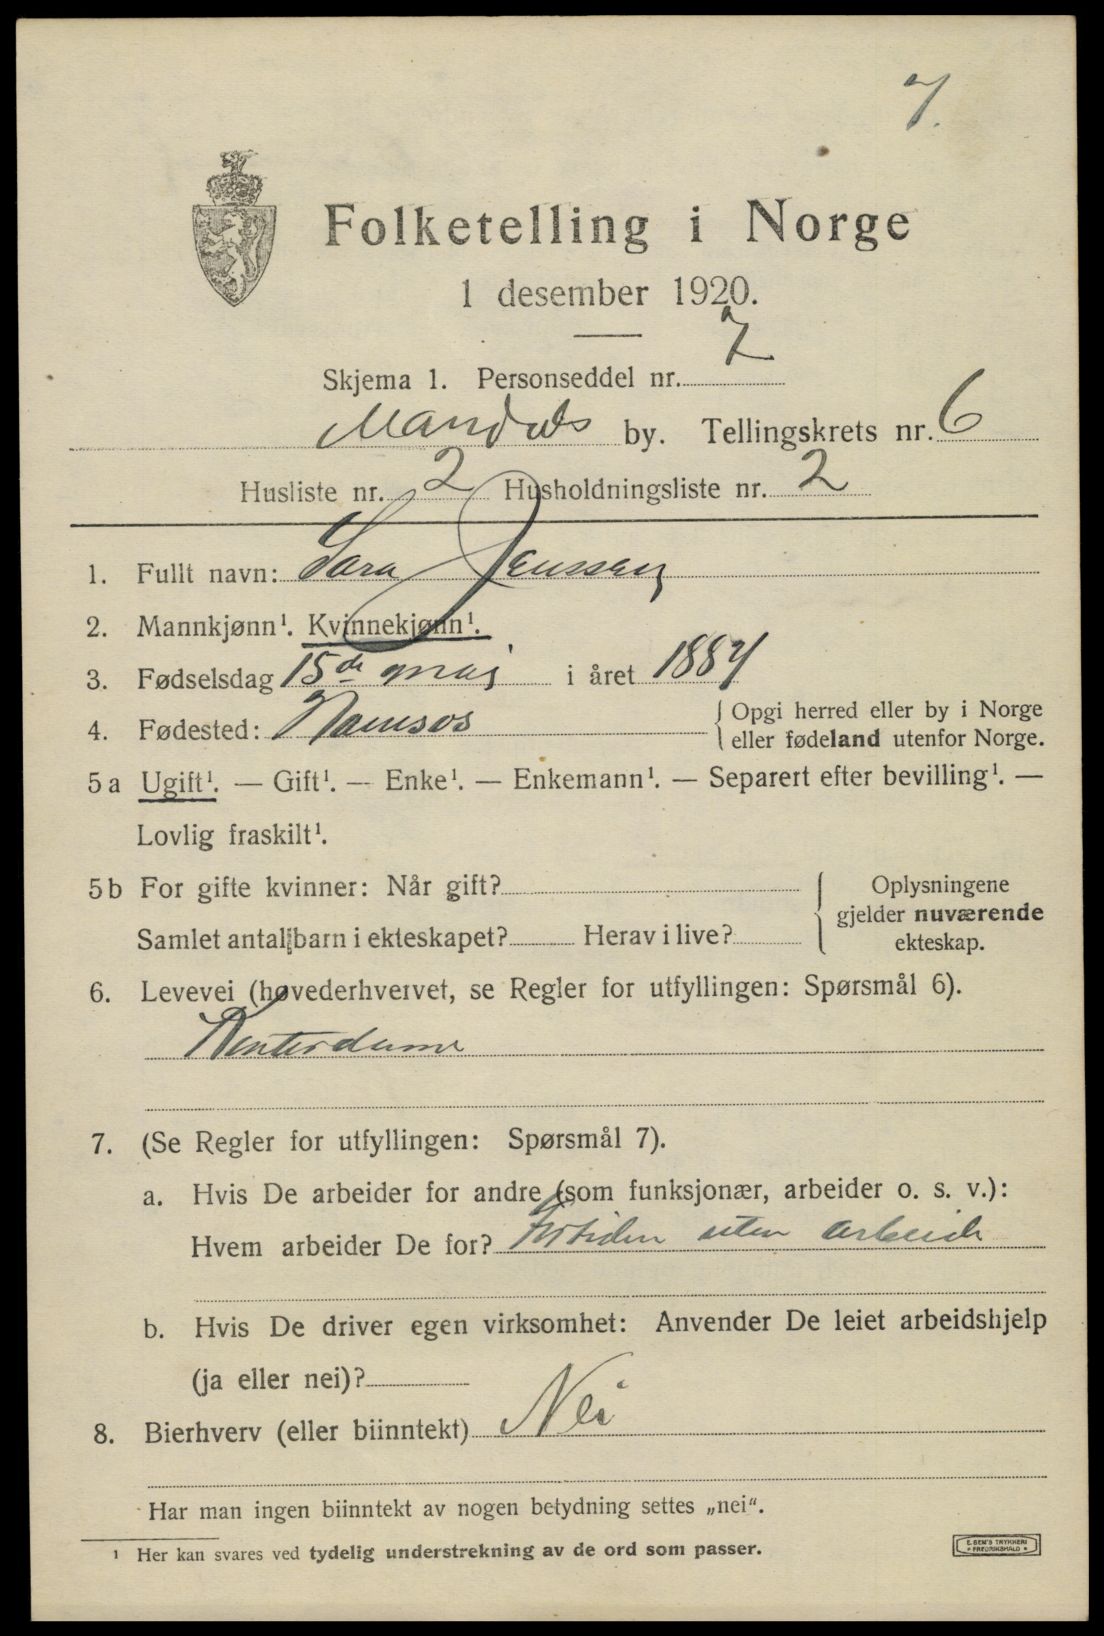 7.
Folketelling i Norge
1 desember 1920.
Skjema 1. Personseddel nr. 7
Mandals by. Tellingskrets nr. 6
Husliste nr. 2 Husholdningsliste nr. 2
1. Fullt navn: Sara Jenssen
2. Mannkjønn¹. Kvinnekjønn¹.
3. Fødselsdag 15de mai i året 1884
4. Fødested: Namsos { Opgi herred eller by i Norge
eller fødeland utenfor Norge.
5a Ugift¹. — Gift¹. — Enke¹. — Enkemann¹. — Separert efter bevilling¹. —
Lovlig fraskilt¹.
5b For gifte kvinner: Når gift?
Samlet antal barn i ekteskapet? Herav i live?
Oplysningene
gjelder nuværende
ekteskap.
6. Levevei (hovederhvervet, se Regler for utfyllingen: Spørsmål 6).
Kontordame
7. (Se Regler for utfyllingen: Spørsmål 7).
a. Hvis De arbeider for andre (som funksjonær, arbeider o. s. v.):
Hvem arbeider De for? For tiden uten arbeide
b. Hvis De driver egen virksomhet: Anvender De leiet arbeidshjelp
(ja eller nei)?
8. Bierhverv (eller biinntekt) Nei
Har man ingen biinntekt av nogen betydning settes „nei“.
¹ Her kan svares ved tydelig understrekning av de ord som passer.
E. SEM'S TRYKKERI
* FREDRIKSHALD *